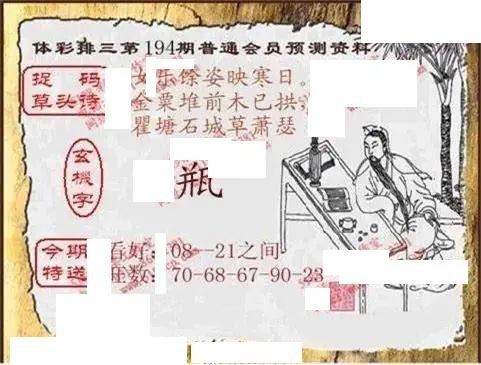 体彩排三第194期普通会员预测资料
捉 码
草头诗
女乐馀姿映寒日。
金粟堆前木已拱
瞿塘石城草萧瑟
玄機字
瓶
今期
特送
看好：08--21之间
胆数：70-68-67-90-23